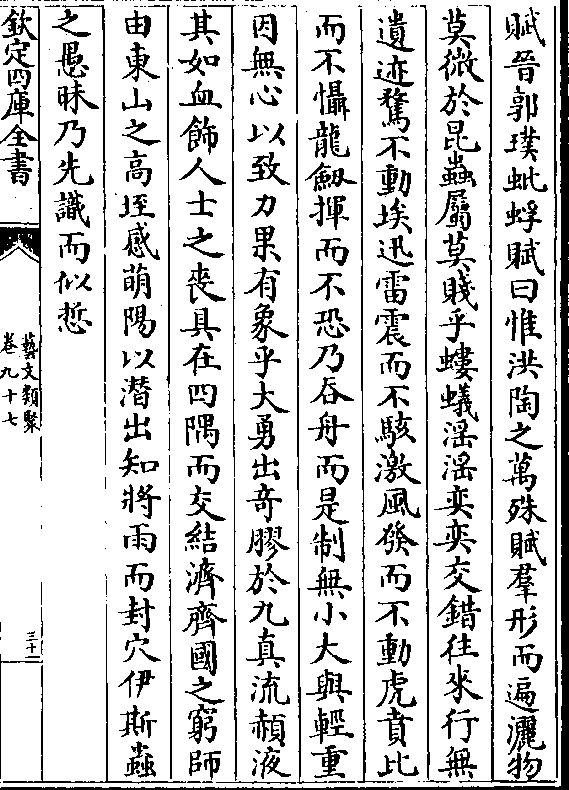 賦晉郭璞蚍蜉賦曰惟洪陶之萬殊賦羣形而遍灑物
莫微於昆蟲屬莫賤乎螻蟻滛滛奕奕交錯往來行無
遺迹騖不動埃迅雷震而不駭激風發而不動虎賁比
而不懾龍劒揮而不恐乃吞舟而是制無小大與輕重
因無心以致力果有象乎大勇出奇膠於九真流赬液
其如血飾人士之喪具在四隅而交結濟齊國之窮師
由東山之高垤感萌陽以潛出知將雨而封穴伊斯蟲
之愚昧乃先識而似悊
欽定四庫全書
藝文類聚
卷九十七
三十一